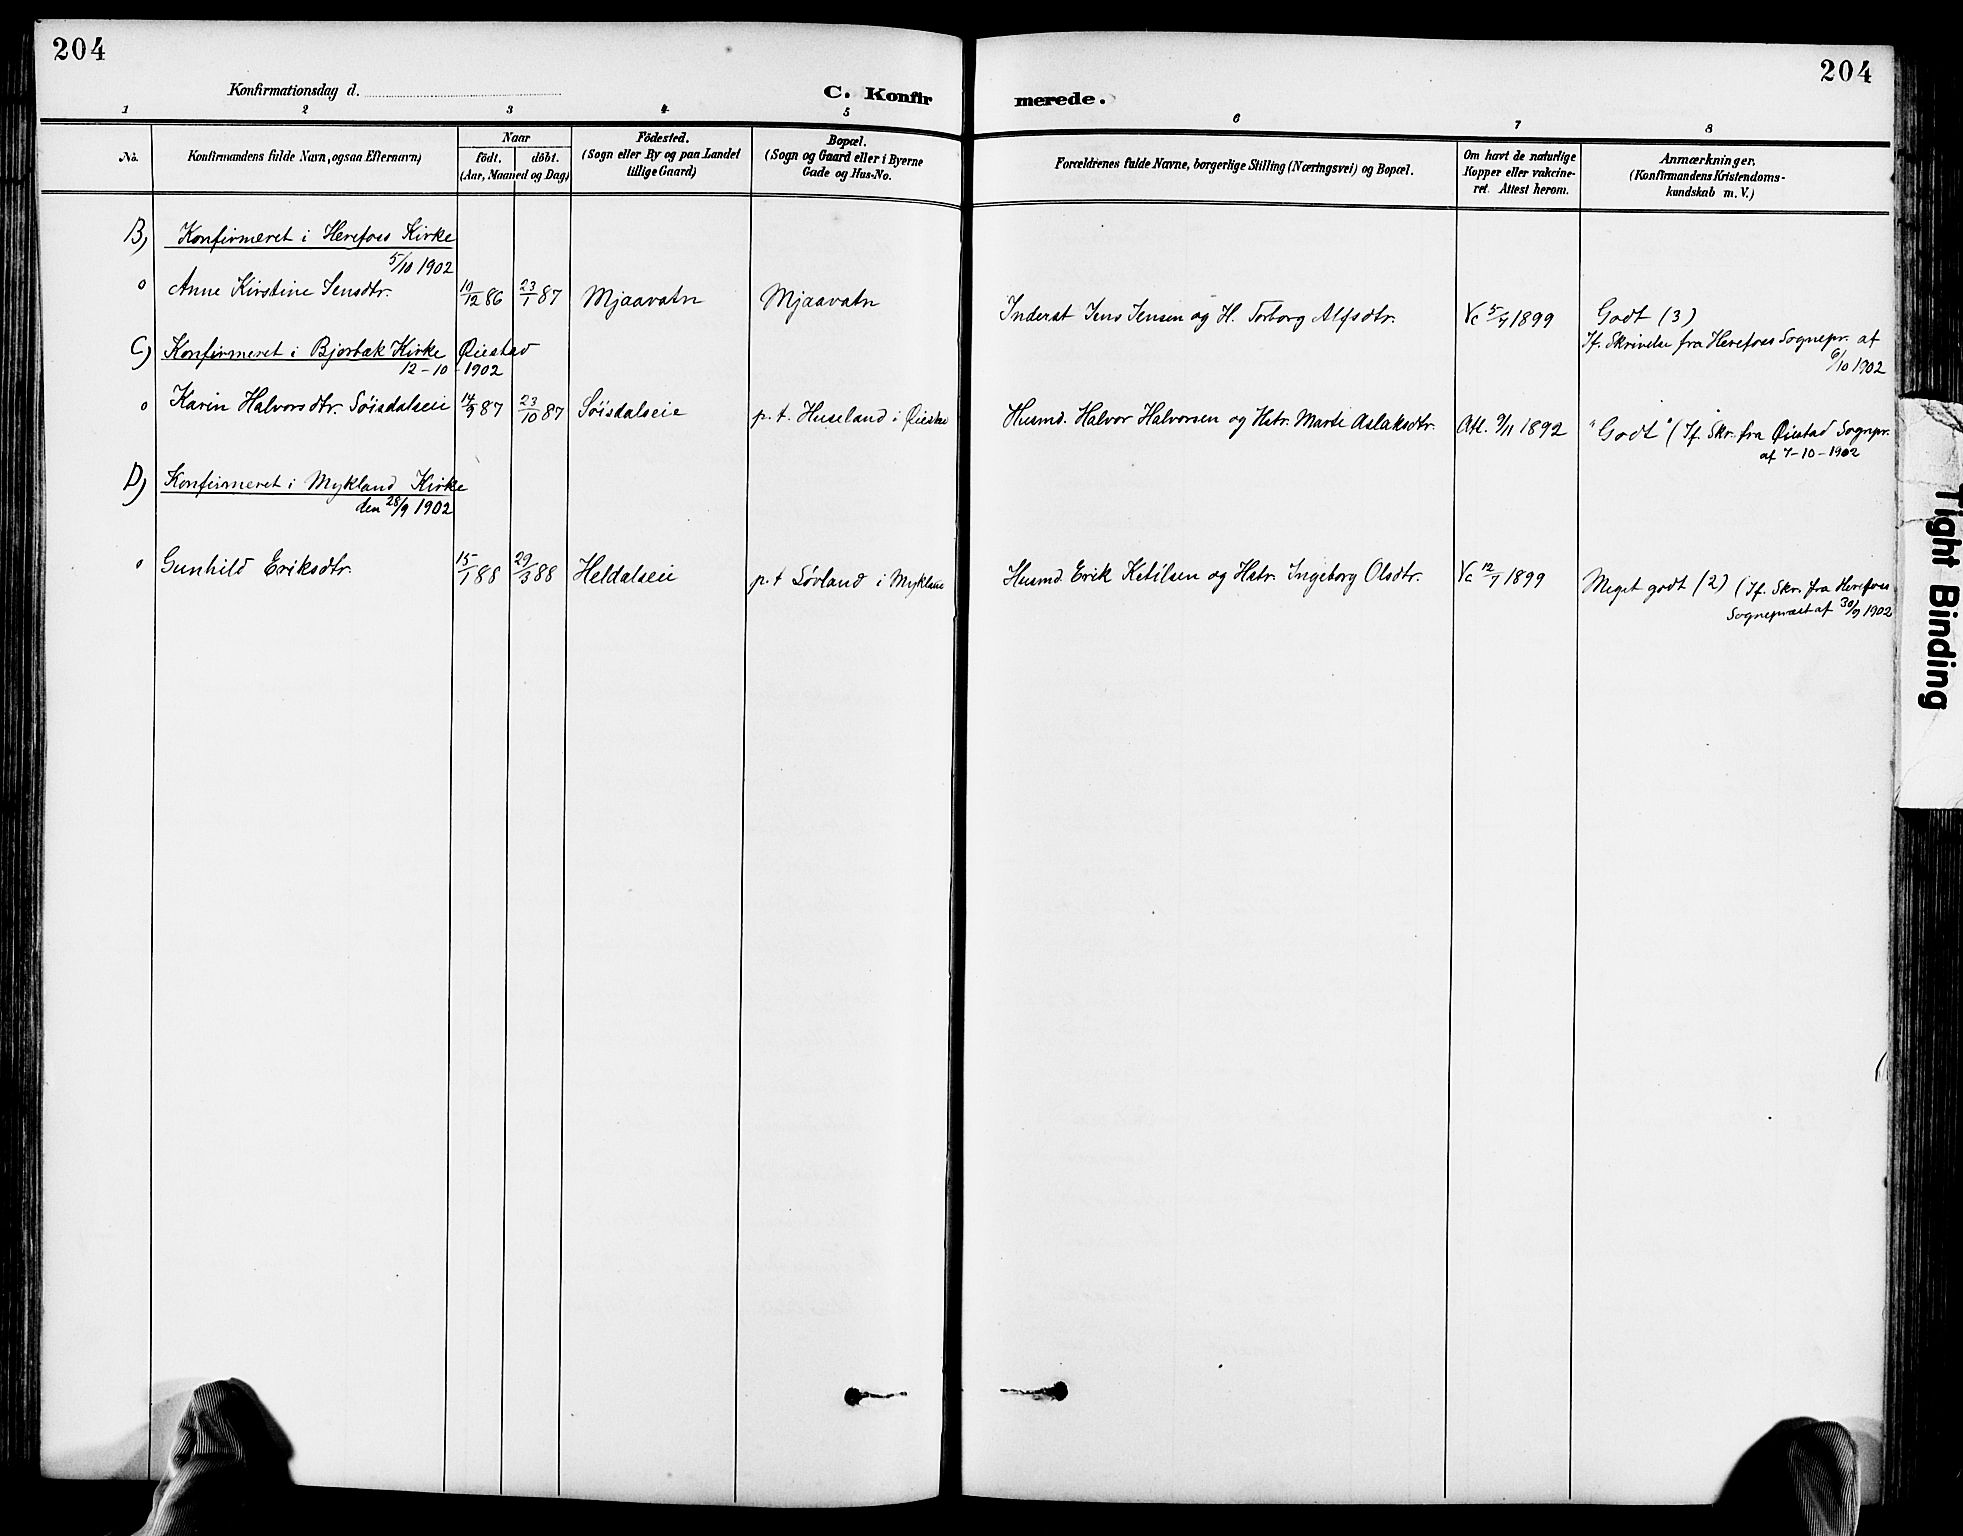 204
204
Konfirmationsdag d.
C. Konfir
merede.
1 2 3 4 5 6 7 8
No.
Konfirmandens fulde Navn, ogsaa Efternavn)
Naar
födt. döbt.
(Aar, Maaned og Dag)
Födested.
(Sogn eller By og paa Landet
tillige Gaard)
Bopæl.
(Sogn og Gaard eller i Byerne
Gade og Hus-No.
Forældrenes fulde Navne, borgerlige Stilling (Næringsvei) og Bopæl.
Om havt de naturlige
Kopper eller vakcine-
ret. Attest herom.
Anmærkninger.
(Konfirmandens Kristendoms-
kundskab m. V.)
B) Konfirmeret i Herefoss Kirke
5/10 1902
o Anne Kirstine Jensdtr. 10/12 86 23/1 87 Mjaavatn Mjaavatn Inderst Jens Jensen og H. Torborg Alfsdtr. Vc 5/7 1899 Godt (3)
Jf. Skrivelse fra Herefoss Sognepr. af
6/10 1902
C) Konfirmeret i Bjorbæk Kirke Øiestad
12-10-1902
o Karin Halvorsdtr. Söisdalseie 14/9 87 23/10 87 Söisdalseie p.t. Huseland i Øiesta Husmd. Halvor Halvorsen og Hstr. Marte Aslaksdtr. Att. 9/11 1892 "Godt" (Jf. Skr. fra Øiestad Sognepr.
af 7-10-1902
D) Konfirmeret i Mykland Kirke
den 28/9 1902
o Gunhild Eriksdtr. 15/1 88 29/3 88 Heldalseie p.t. Løvland i Myklan Husmd. Erik Ketilsen og Hstr. Ingeborg Olsdtr. Vc 12/7 1899 Meget godt (2) (Jf. Skr. fra Herefoss
Sognepræst af 30/9 1902
Tight Binding